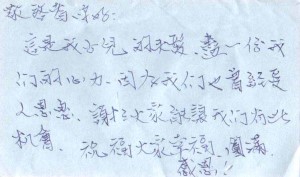 敬啟者您好：
這是我小兒的奶粉，盡一份我
們的心力，因為我們也曾經受
人恩惠。謝謝大家就讓我們有此
機會。祝福大家幸福、圓滿。
感恩!!